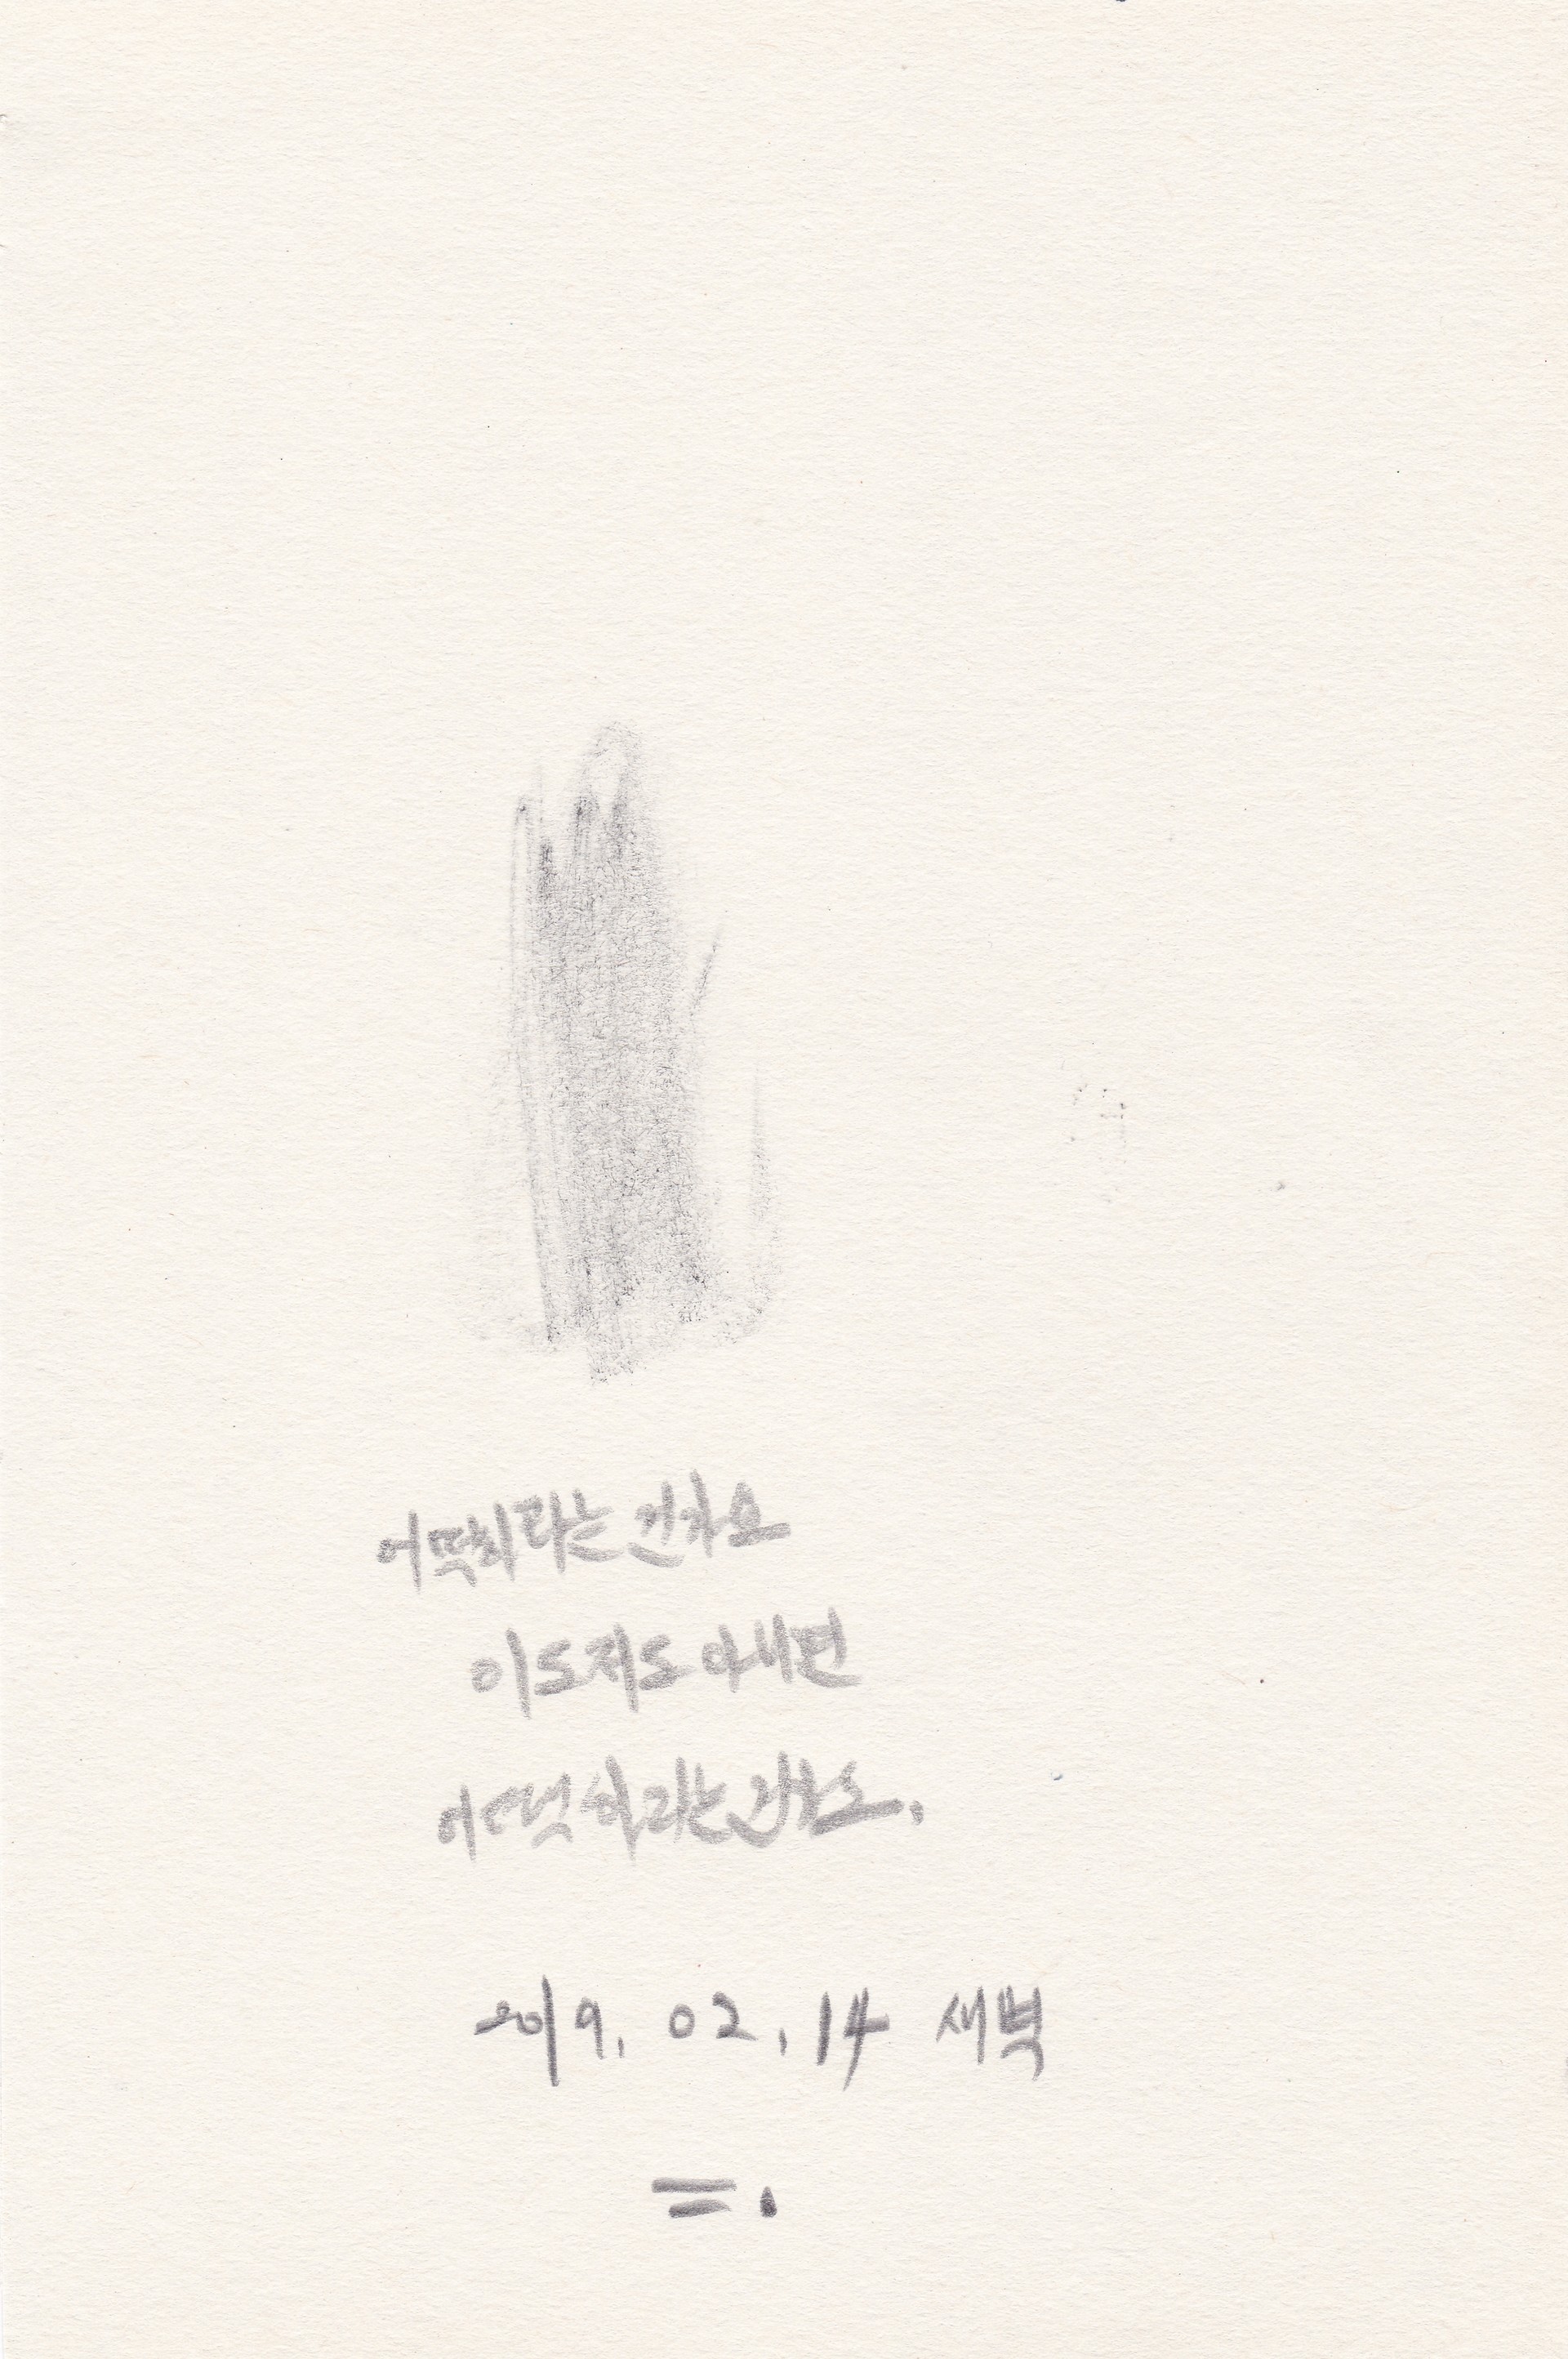 어떡하라는 건가요
이도저도 아니면
어떡하라는 건가요.
2019. 02. 14 새벽
=.